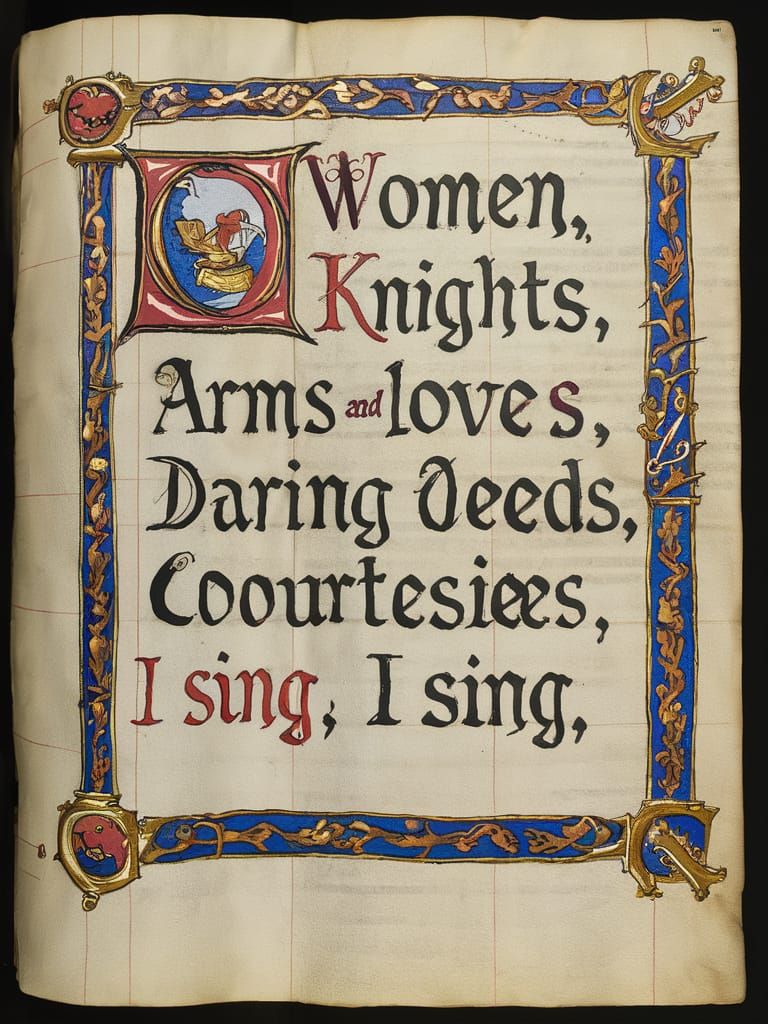 Women,
Knights,
Arms and loves,
Daring Deeds,
Coourtesiees,
I sing, I sing,